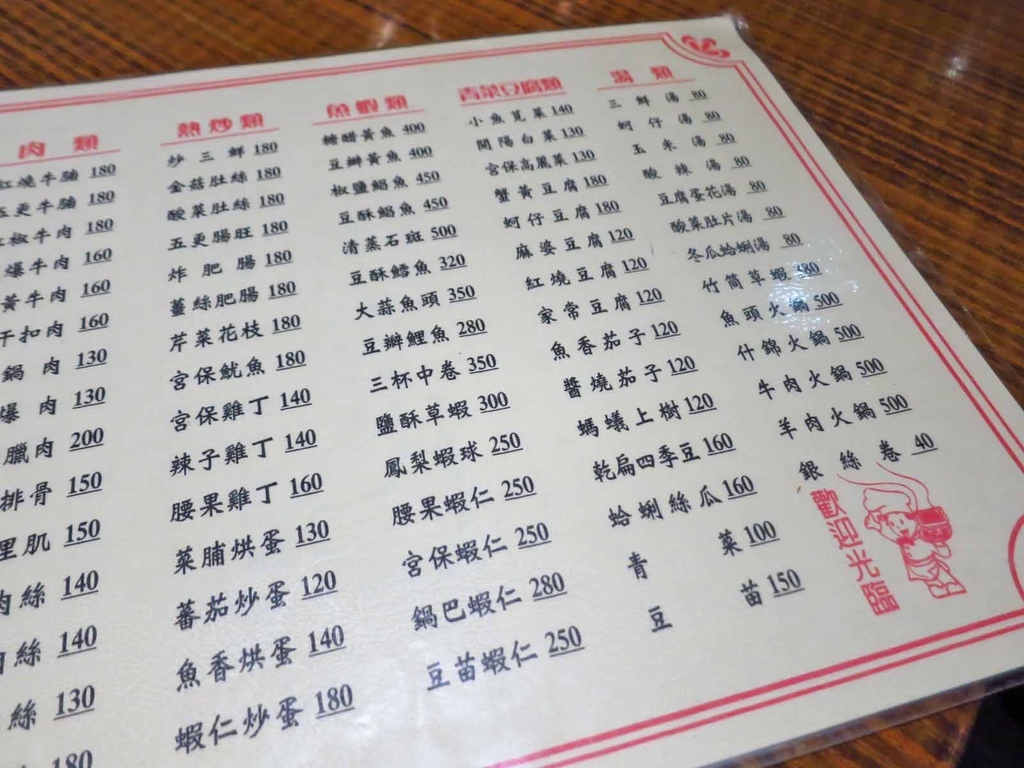 肉類
紅燒牛腩 180
五更牛腩 180
椒牛肉 180
爆牛肉 160
黃牛肉 160
干扣肉 160
鍋肉 130
爆肉 130
臘肉 200
排骨 150
里肌 150
肉絲 140
絲 140
絲 130
180
熱炒類
炒三鮮 180
金菇肚絲 180
酸菜肚絲 180
五更腸旺 180
炸肥腸 180
薑絲肥腸 180
芹菜花枝 180
宮保魷魚 180
宮保雞丁 140
辣子雞丁 140
腰果雞丁 160
菜脯烘蛋 130
蕃茄炒蛋 120
魚香烘蛋 140
蝦仁炒蛋 180
魚蝦類
糖醋黃魚 400
豆瓣黃魚 400
椒鹽鯧魚 450
豆酥鯧魚 450
清蒸石斑 500
豆酥鱈魚 320
大蒜魚頭 350
豆瓣鯉魚 280
三杯中卷 350
鹽酥草蝦 300
鳳梨蝦球 250
腰果蝦仁 250
宮保蝦仁 250
鍋巴蝦仁 280
豆苗蝦仁 250
青菜豆腐類
小魚莧菜 140
開陽白菜 130
宮保高麗菜 130
蟹黃豆腐 180
蚵仔豆腐 180
麻婆豆腐 120
紅燒豆腐 120
家常豆腐 120
魚香茄子 120
醬燒茄子 120
螞蟻上樹 120
乾扁四季豆 160
蛤蜊絲瓜 160
青菜 100
豆苗 150
湯類
三鮮湯 80
蚵仔湯 80
玉米湯 80
酸辣湯 80
豆腐蛋花湯 80
酸菜肚片湯 80
冬瓜蛤蜊湯 80
竹筒草蝦 480
魚頭火鍋 500
什錦火鍋 500
牛肉火鍋 500
羊肉火鍋 500
銀絲卷 40
歡迎光臨